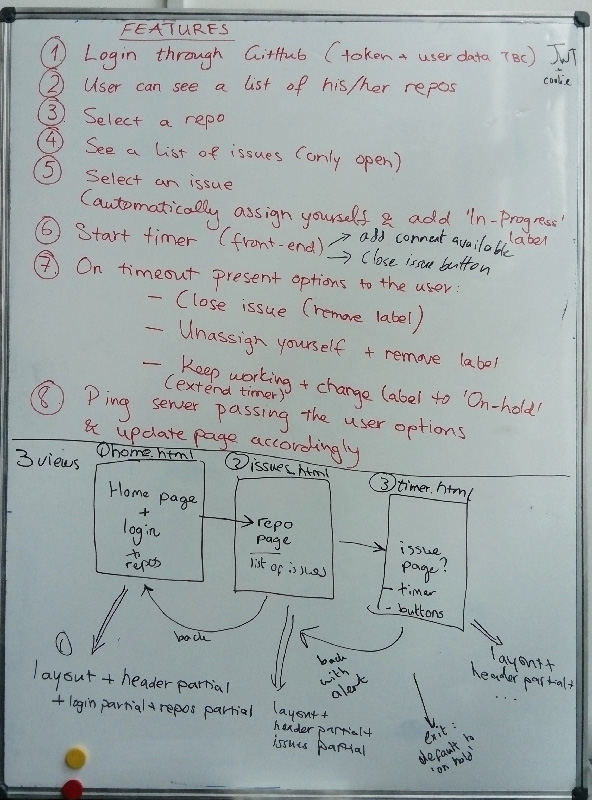 FEATURES
① Login through GitHub (token + user data TBC) JWT
cookie
② User can see a list of his/her repos
③ Select a repo
④ See a list of issues (only open)
⑤ Select an issue
(automatically assign yourself & add 'In-Progress'
label
⑥ Start timer (front-end) → add comment available
→ Close issue button
⑦ On timeout present options to the user:
— Close issue (remove label)
— Unassign yourself + remove label
— Keep working + change label to 'On-hold'
(extend timer)
⑧ Ping server passing the user options
& update page accordingly
3 views
① home.html
Home page
+
login
+
repos
② issues.html
repo
page
list of issues
③ timer.html
issue
page?
- timer
- buttons
back
back
with
alert
①
layout + header partial
+ login partial + repos partial
layout +
header partial +
issues partial
exit:
default to
'on hold'
layout +
header partial +
...